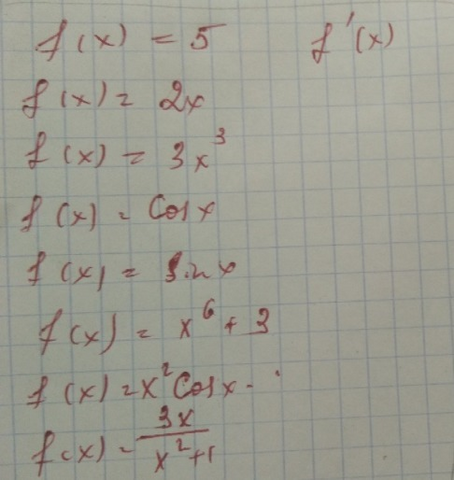 f(x) = 5 f'(x)
f(x) = 2x
f(x) = 3x³
f(x) = Cosx
f(x) = Sinx
f(x) = x⁶ + 3
f(x) = x² Cosx.
f(x) = 3x/(x²+1)